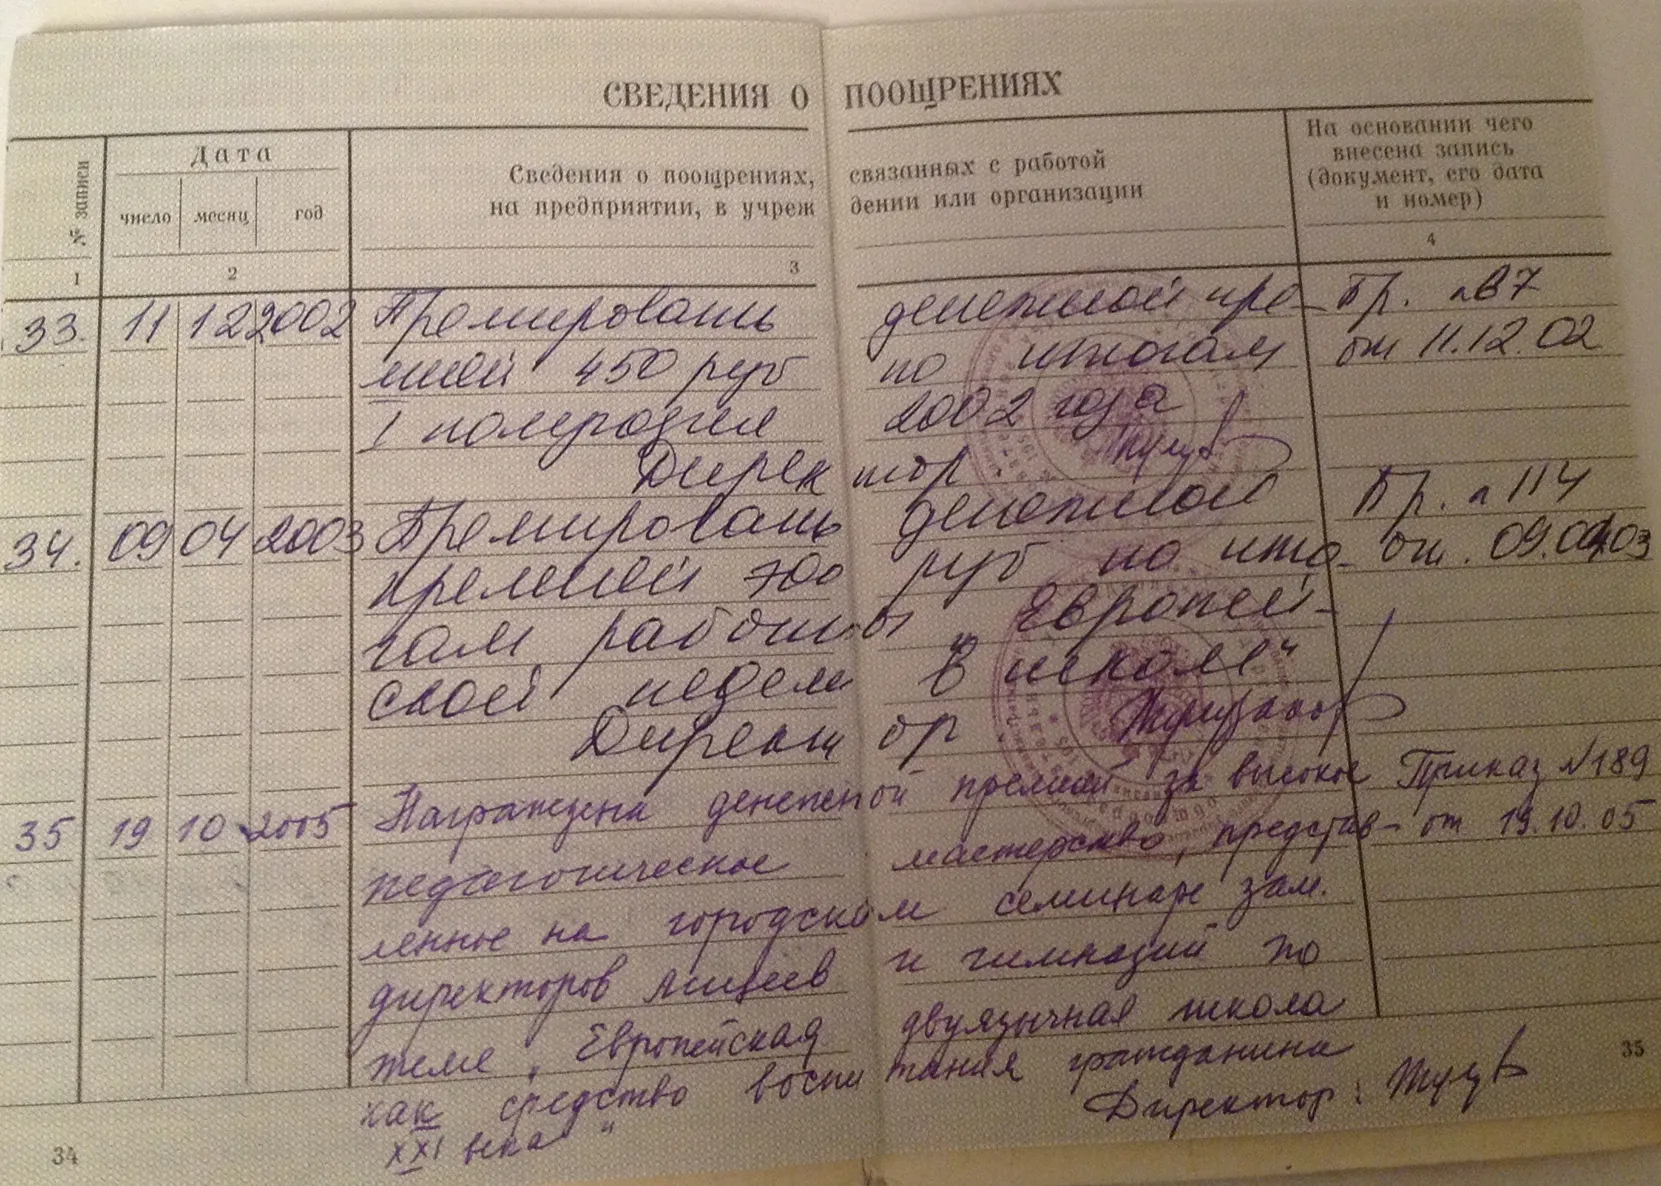 СВЕДЕНИЯ О ПООЩРЕНИЯХ
№ записи
Дата
число месяц год
Сведения о поощрениях, связанных с работой
на предприятии, в учреж дении или организации
На основании чего
внесена запись
(документ, его дата
и номер)
1 2 3 4
33. 11 12 2002 Премировать денежной пре- Пр. №87
мией 450 руб по итогам от 11.12.02
I полугодия 2002 года
Директор
34. 09 04 2003 Премировать денежной Пр. №114
премией 700 руб по ито- от. 09.04.03
гам работы „Европей-
ской недели в школе“
Директор
35 19 10 2005 Награждена денежной премией за высокое Приказ №189
педагогическое мастерство, представ- от 19.10.05
ленное на городском семинаре зам.
директоров лицеев и гимназий по
теме „Европейская двуязычная школа
как средство воспитания гражданина
XXI века“
Директор:
34
35